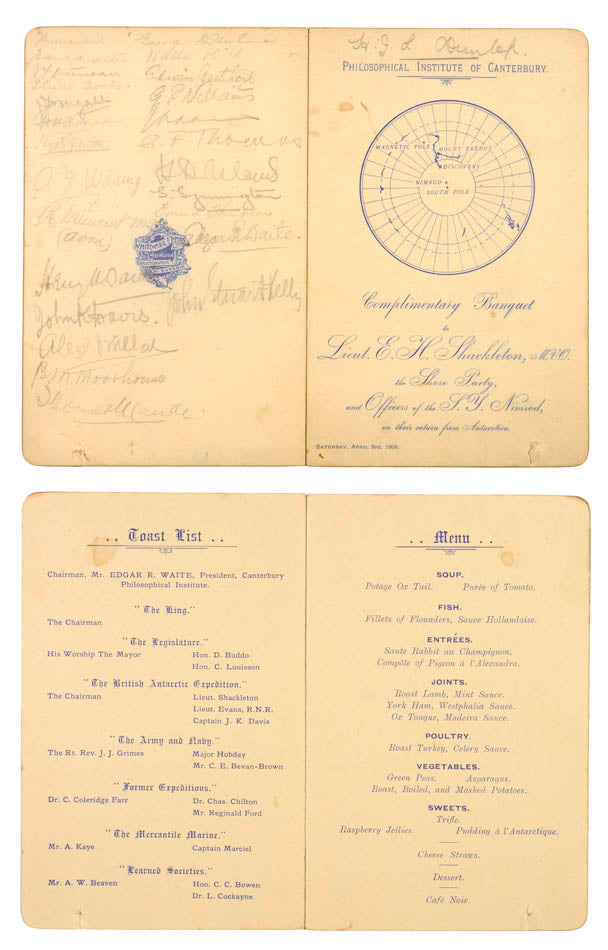 George
A. F. Thomas
H D Ireland
Edgar R. Waite.
John Stuart Kelly
John K Davis.
WHITCOMBE & TOMBS
H. J. L. Dunlop.
PHILOSOPHICAL INSTITUTE OF CANTERBURY.
MAGNETIC POLE
MOUNT EREBUS
DISCOVERY
NIMROD
SOUTH POLE
Complimentary Banquet
to
Lieut. E. H. Shackleton, M.V.O.
the Shore Party,
and Officers of the S. Y. Nimrod,
on their return from Antarctica.
SATURDAY, APRIL 3rd, 1909.
.. Toast List ..
Chairman, Mr. EDGAR R. WAITE, President, Canterbury
Philosophical Institute.
"The King."
The Chairman
"The Legislature."
His Worship The Mayor Hon. D. Buddo
Hon. C. Louisson
"The British Antarctic Expedition."
The Chairman Lieut. Shackleton
Lieut. Evans, R.N.R.
Captain J. K. Davis
"The Army and Navy."
The Rt. Rev. J. J. Grimes Major Hobday
Mr. C. E. Bevan-Brown
"Former Expeditions."
Dr. C. Coleridge Farr Dr. Chas. Chilton
Mr. Reginald Ford
"The Mercantile Marine."
Mr. A. Kaye Captain Marciel
"Learned Societies."
Mr. A. W. Beaven Hon. C. C. Bowen
Dr. L. Cockayne
.. Menu ..
SOUP.
Potage Ox Tail. Purée of Tomato.
FISH.
Fillets of Flounders, Sauce Hollandaise.
ENTRÉES.
Saute Rabbit au Champignon.
Compôte of Pigeon à l'Alexandra.
JOINTS.
Roast Lamb, Mint Sauce.
York Ham, Westphalia Sauce.
Ox Tongue, Madeira Sauce.
POULTRY.
Roast Turkey, Celery Sauce.
VEGETABLES.
Green Peas. Asparagus.
Roast, Boiled, and Mashed Potatoes.
SWEETS.
Trifle.
Raspberry Jellies. Pudding à l'Antarctique.
Cheese Straws.
Dessert.
Café Noir.